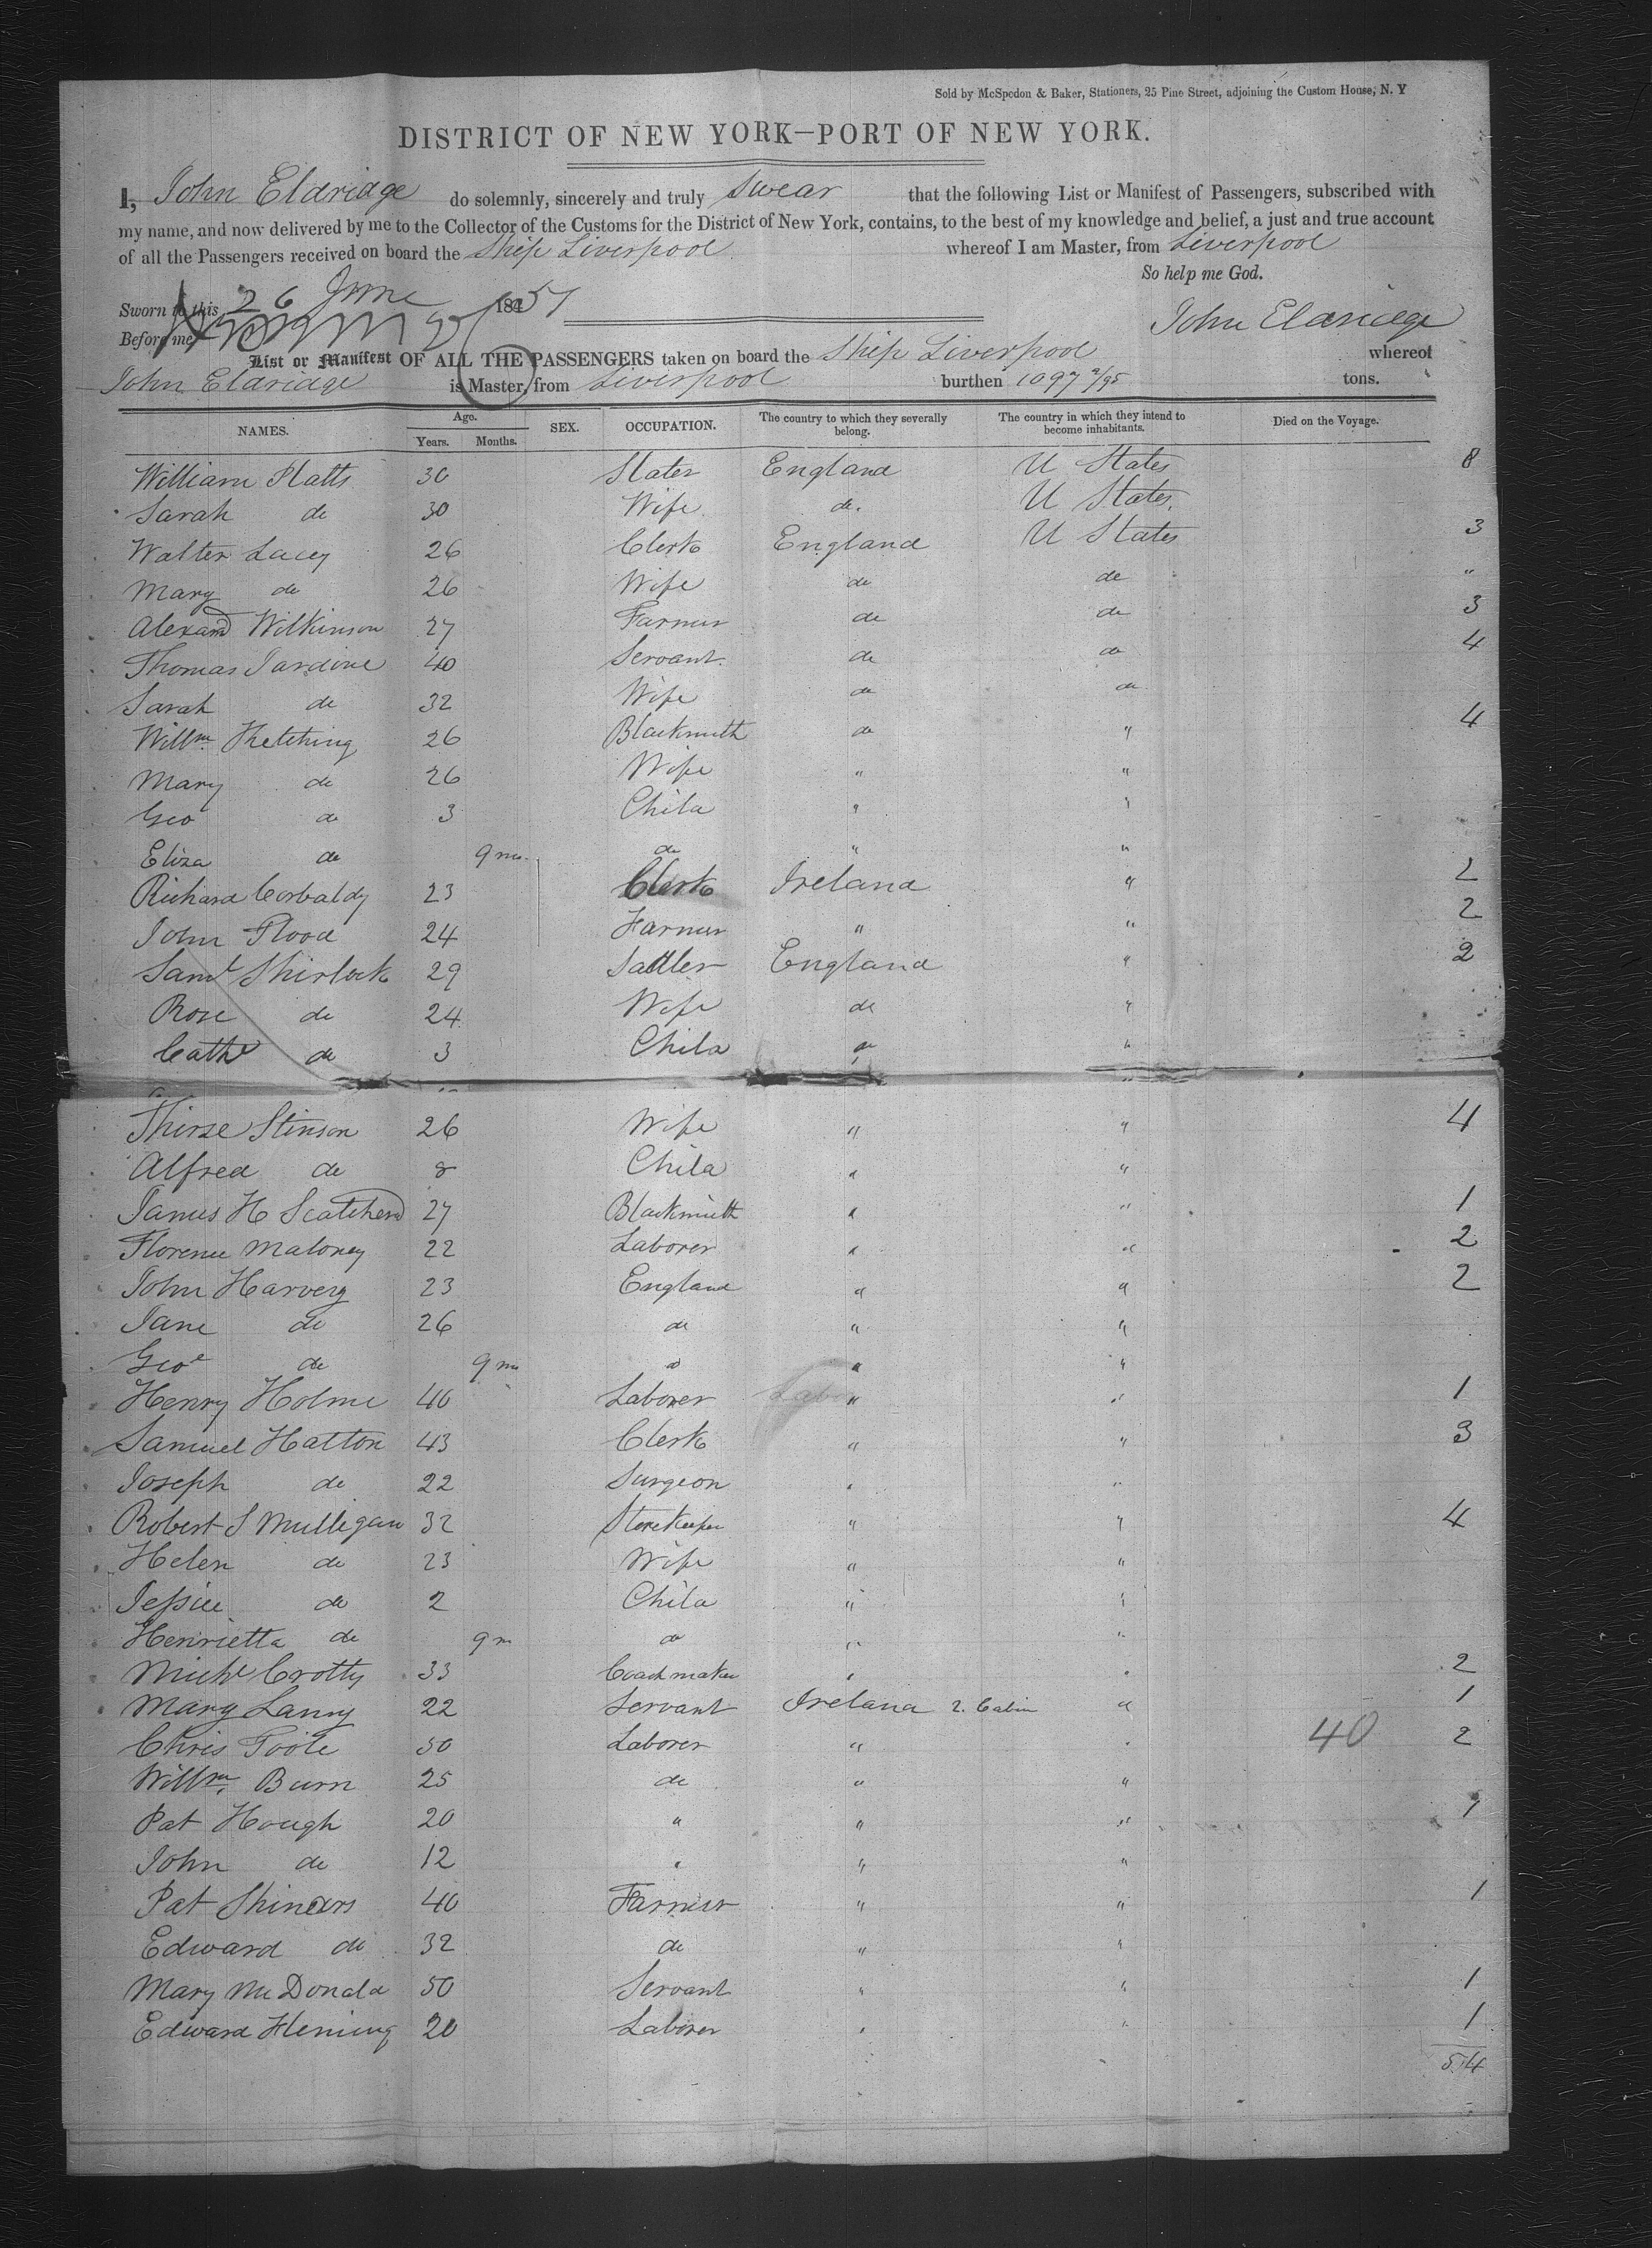 Sold by McSpedon & Baker, Stationers, 25 Pine Street, adjoining the Custom House, N. Y
DISTRICT OF NEW YORK—PORT OF NEW YORK.
I, John Eldridge do solemnly, sincerely and truly Swear that the following List or Manifest of Passengers, subscribed with
my name, and now delivered by me to the Collector of the Customs for the District of New York, contains, to the best of my knowledge and belief, a just and true account
of all the Passengers received on board the Ship Liverpool whereof I am Master, from Liverpool
So help me God.
Sworn to this 26 June 1851
John Eldridge
Before me
List or Manifest OF ALL THE PASSENGERS taken on board the Ship Liverpool whereof
John Eldridge is Master, from Liverpool burthen 1097 2/95 tons.
NAMES. Age. Years. Months. SEX. OCCUPATION. The country to which they severally belong. The country in which they intend to become inhabitants. Died on the Voyage.
William Platts 30 Slater England U States 8
Sarah do 30 Wife do. U States.
Walter Lacey 26 Clerk England U States 3
Mary do 26 Wife do do "
Alexand Wilkinson 27 Farmer do do 3
Thomas Jardine 40 Servant do do 4
Sarah do 32 Wife do do
Willm Ketching 26 Blacksmith do " 4
Mary do 26 Wife " "
Geo do 3 Child " "
Eliza do 9 mo. do " "
Richard Corbaldy 23 Clerk Ireland " 2
John Flood 24 Farmer " " 2
Saml Shirlock 29 Sadler England " 2
Rose do 24 Wife do "
Cathe do 3 Child do "
Thirze Stinson 26 Wife " " 4
Alfred do 8 Child " "
James H Scatcherd 27 Blacksmith " " 1
Florence Maloney 22 Laborer " " 2
John Harvey 23 England " " 2
Jane do 26 do " "
Geoe do 9 mo do " "
Henry Holme 40 Laborer " " 1
Samuel Hatton 43 Clerk " " 3
Joseph do 22 Surgeon " "
Robert S Mulligan 32 Storekeeper " " 4
Helen do 23 Wife " "
Jessie do 2 Child " "
Henrietta do 9 m do " "
Michl Crotty 33 Coachmaker " " 2
Mary Lanny 22 Servant Ireland 2. Cabin " 1
Chris Toole 50 Laborer " " 40 2
Willm Burn 25 do " "
Pat Hough 20 " " " 1
John do 12 " " "
Pat Shiners 40 Farmer " " 1
Edward do 32 do " "
Mary McDonald 50 Servant " " 1
Edward Fleming 20 Laborer " " 1
54